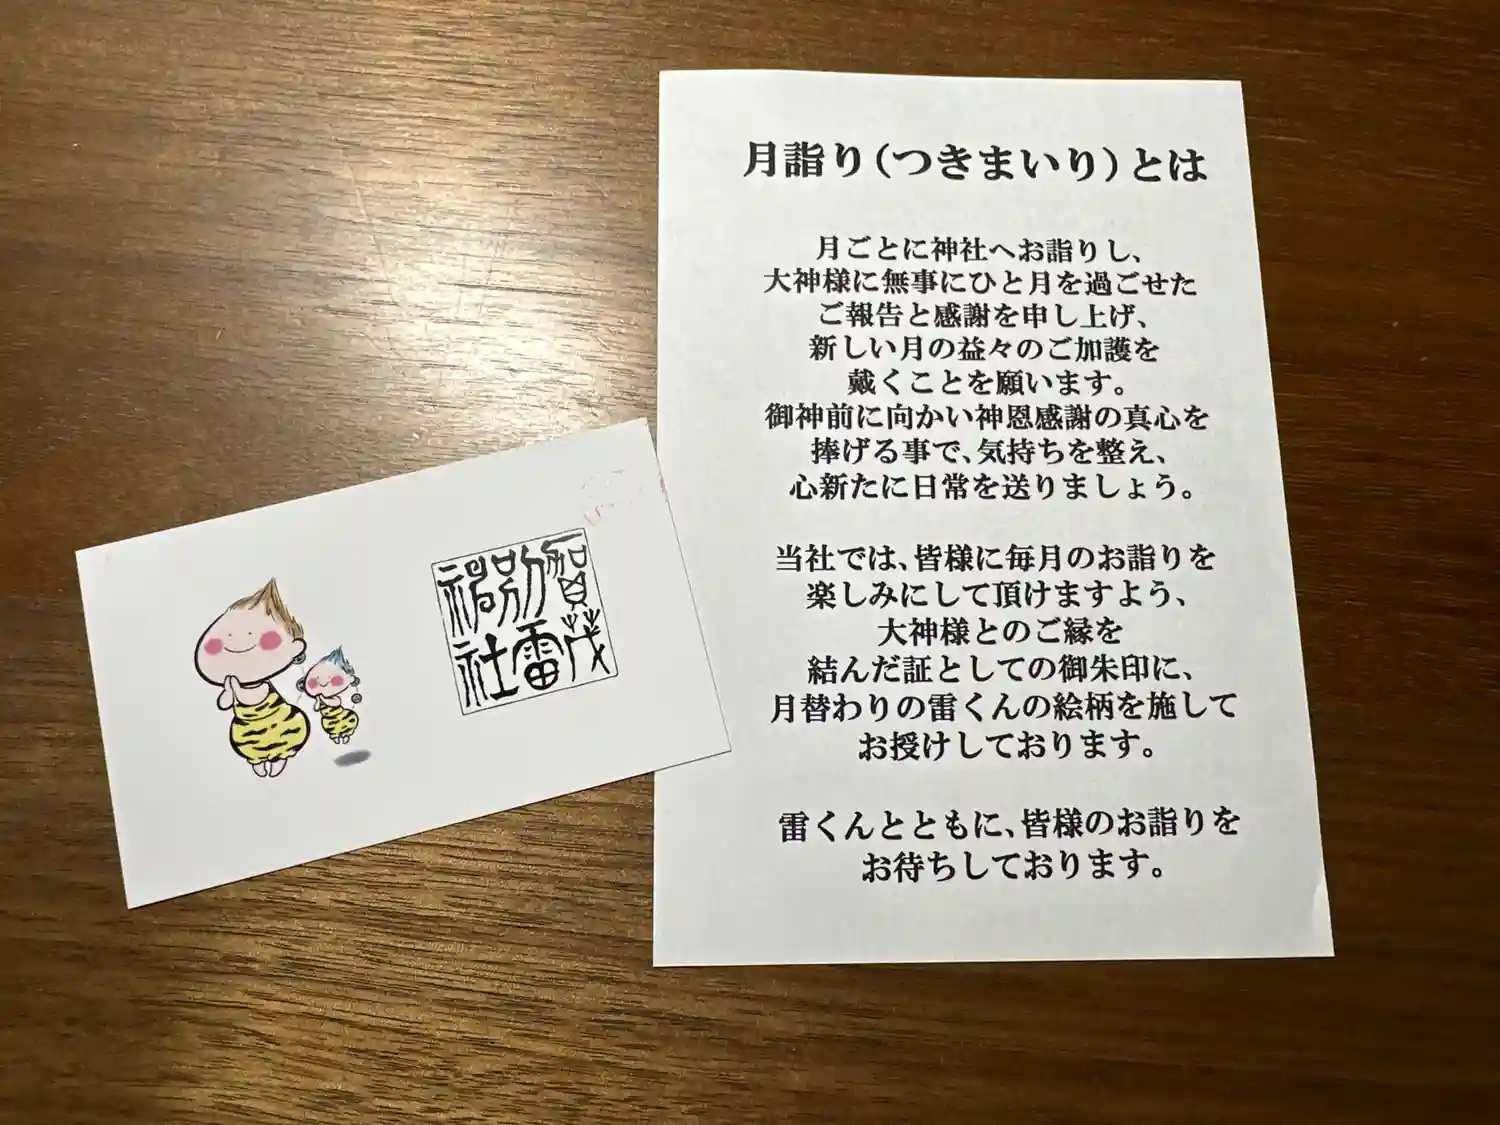 月詣り（つきまいり）とは
月ごとに神社へお詣りし、
大神様に無事にひと月を過ごせた
ご報告と感謝を申し上げ、
新しい月の益々のご加護を
戴くことを願います。
御神前に向かい神恩感謝の真心を
捧げる事で、気持ちを整え、
心新たに日常を送りましょう。
当社では、皆様に毎月のお詣りを
楽しみにして頂けますよう、
大神様とのご縁を
結んだ証としての御朱印に、
月替わりの雷くんの絵柄を施して
お授けしております。
雷くんとともに、皆様のお詣りを
お待ちしております。
賀茂
別雷
神社